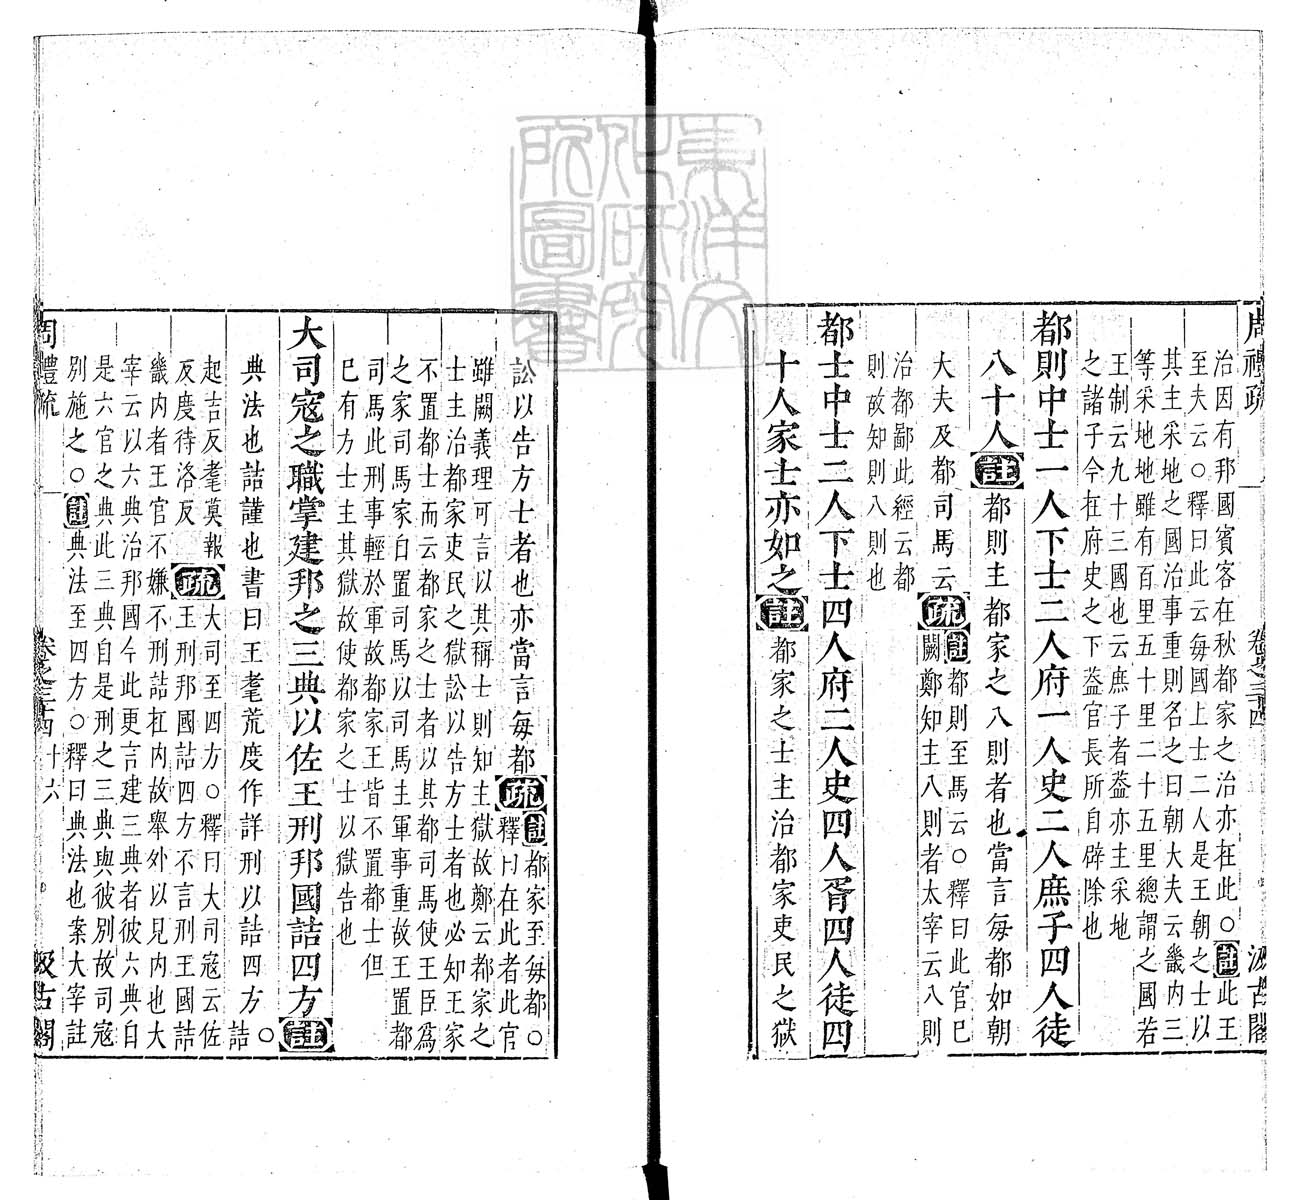 周禮疏 卷之三十四 汲古閣
治因有邦國賓客在秋都家之治亦在此〇註此王
至夫云〇釋曰此云每國上士二人是王朝之士以
其主采地之國治事重則名之曰朝大夫云畿內三
等采地地雖有百里五十里二十五里總謂之國若
王制云九十三國也云庶子者葢亦主采地
之諸子今在府史之下葢官長所自辟除也
都則中士一人下士二人府一人史二人庶子四人徒
八十人註都則主都家之八則者也當言每都如朝
大夫及都司馬云疏註都則至馬云〇釋曰此官已
闕鄭知主八則者太宰云八則
治都鄙此經云都
則故知則八則也
都士中士二人下士四人府二人史四人胥四人徒四
十人家士亦如之註都家之士主治都家吏民之獄
訟以告方士者也亦當言每都疏註都家至每都〇
釋曰在此者此官
雖闕義理可言以其稱士則知主獄故鄭云都家之
士主治都家吏民之獄訟以告方士者也必知王家
不置都士而云都家之士者以其都司馬使王臣爲
之家司馬家自置司馬以司馬主軍事重故王置都
司馬此刑事輕於軍故都家王皆不置都士但
已有方士主其獄故使都家之士以獄告也
大司寇之職掌建邦之三典以佐王刑邦國詰四方註
典法也詰謹也書曰王耄荒度作詳刑以詰四方〇
詰
起吉反耄莫報
反度待洛反
疏大司至四方〇釋曰大司寇云佐
王刑邦國詰四方不言刑王國詰
畿內者王官不嫌不刑詰在內故舉外以見內也大
宰云以六典治邦國今此更言建三典者彼六典自
是六官之典此三典自是刑之三典與彼別故司寇
別施之〇註典法至四方〇釋曰典法也案大宰註
周禮疏 卷之三十四 十六 汲古閣
東洋文化研究所圖書